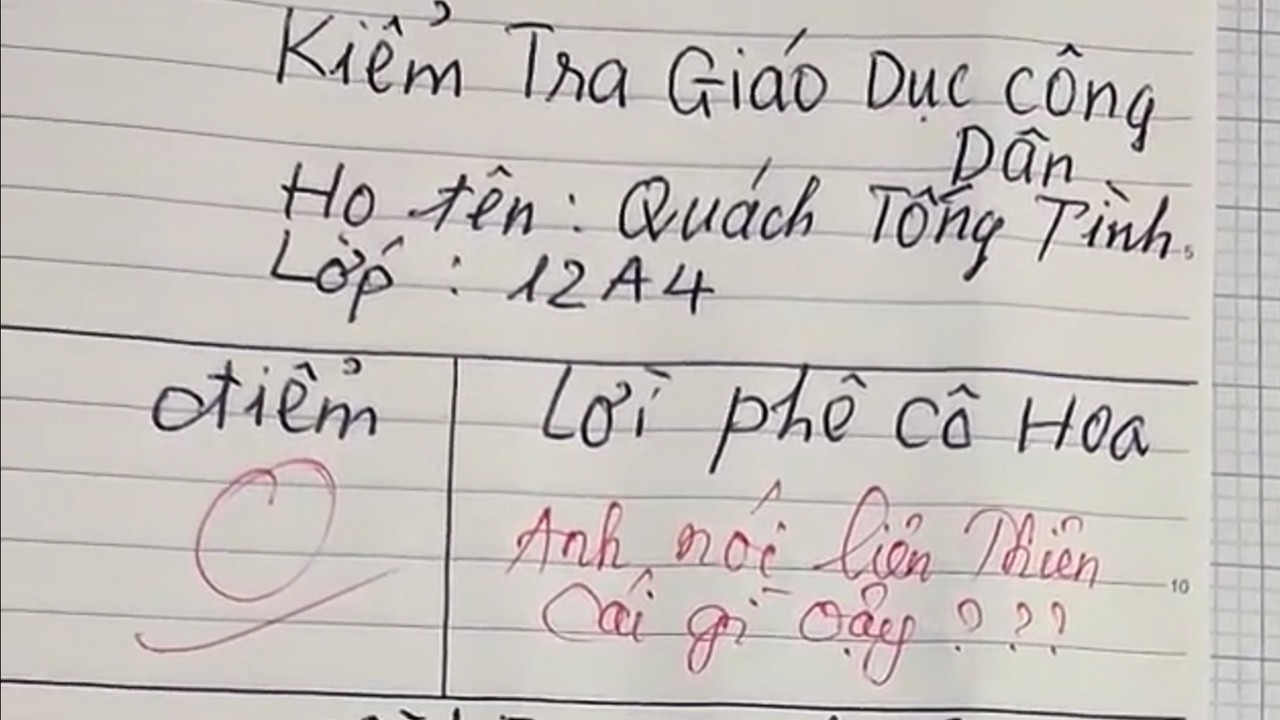 Kiểm Tra Giáo Dục công
Dân
Họ tên : Quách Tống Tình
5
Lớp : 12A4
điểm
Lời phê cô Hoa
0
Anh nói liên Thiên
10
Cái gì vậy ???